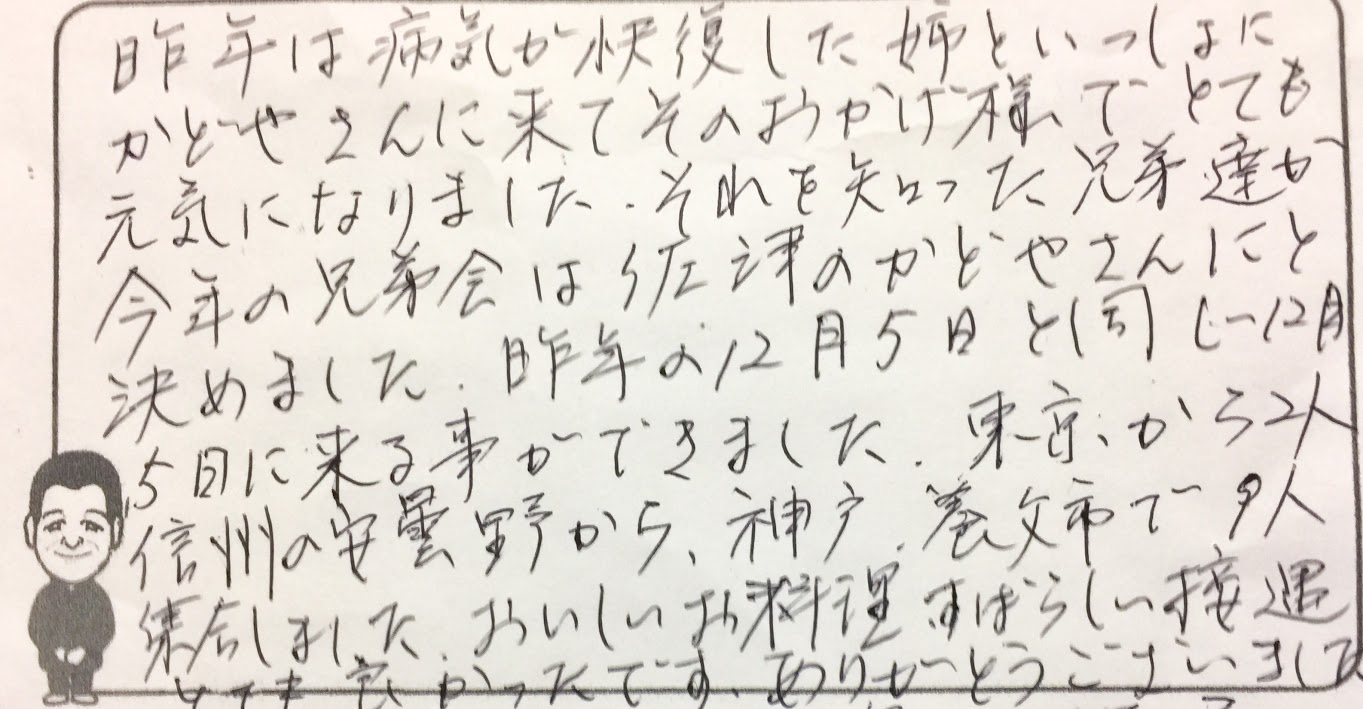 昨年は病気が快復した姉といっしょに
かどやさんに来てそのおかげ様でとても
元気になりました.それを知った兄弟達が
今年の兄弟会は佐津のかどやさんにと
決めました.昨年の12月5日と同じ12月
5日に来る事ができました.東京から2人
信州の安曇野から、神戸.養父市で9人
集合しました.おいしいお料理すばらしい接遇
とても良かったです.ありがとうございました